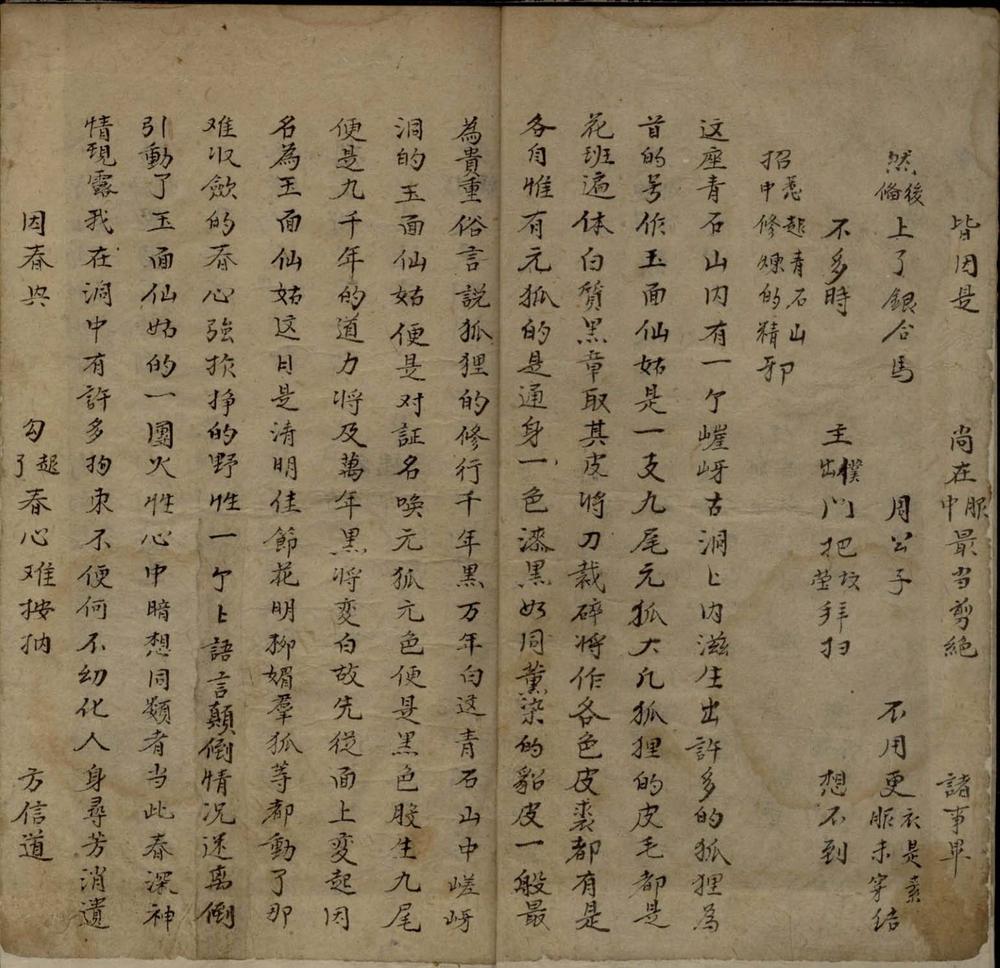 皆因是 尚在服中最当剪絕 諸事畢
然後偹上了銀合馬 周公子 不用更衣是素服未穿結
不多時 主僕出門把坟茔拜扫 想不到
招惹起青石山中修煉的精邪
这座青石山内有一个嵯岈古洞卜内滋生出許多的狐狸為
首的号作玉面仙姑是一支九尾元狐大凡狐狸的皮毛都是
花班遍体白質黑章取其皮将刀裁碎将作各色皮裘都有是
各自惟有元狐的是通身一色漆黑如同薫染的貂皮一般最
為貴重俗言説狐狸的修行千年黑万年白这青石山中嵯岈
洞的玉面仙姑便是对証名唤元狐元色便是黑色股生九尾
便是九千年的道力将及萬年黑将变白故先従面上变起因
名為玉面仙姑这日是清明佳節花明柳媚羣狐等都動了那
难収歛的春心強挣的野性一个卜語言顛倒情况迷离倒
引動了玉面仙姑的一團火性心中暗想同類者当此春深神
情現露我在洞中有許多拘束不便何不幻化人身尋芳消遺
因春興 勾起了春心难按纳 方信道